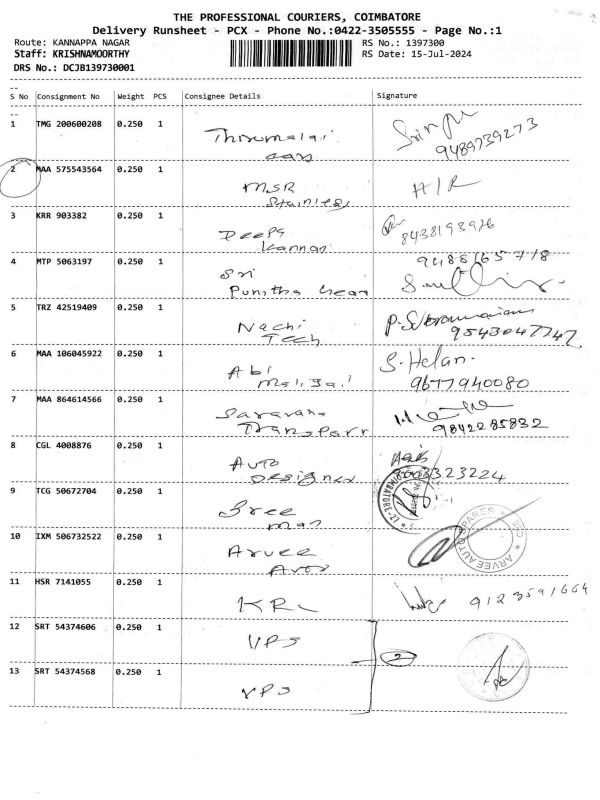 THE PROFESSIONAL COURIERS, COIMBATORE
Delivery Runsheet - PCX - Phone No.:0422-3505555 - Page No.:1
Route: KANNAPPA NAGAR RS No.: 1397300
Staff: KRISHNAMOORTHY RS Date: 15-Jul-2024
DRS No.: DCJB139730001
S No Consignment No Weight PCS Consignee Details Signature
1 TMG 200600208 0.250 1 Thirumalai
9489739273
2 MAA 575543564 0.250 1 MSR H/R
Stainless
3 KRR 903382 0.250 1 Deepa
Kannan 8438193926
4 MTP 5063197 0.250 1 Sri 9488165718
Punitha
5 TRZ 42519409 0.250 1 Nachi P. Subramaniam
Tech 9543047747
6 MAA 106045922 0.250 1 Abi S. Helan.
9677940080
7 MAA 864614566 0.250 1 Saravana
Transport 9842285832
8 CGL 4008876 0.250 1 Auto
Designer 323224
9 TCG 50672704 0.250 1 Sree
COIMBATORE-22
10 IXM 506732522 0.250 1 Arvee
Auto
ARVEE AUTO SPARES * CBE *
11 HSR 7141055 0.250 1 9123591664
12 SRT 54374606 0.250 1 VPS
2
13 SRT 54374568 0.250 1 VPS